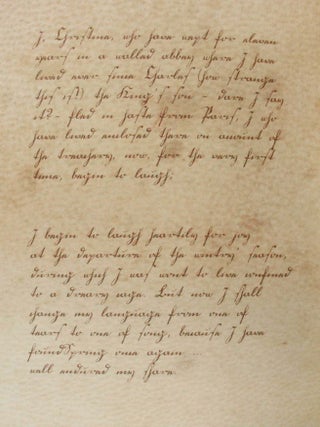 I, Christine, who have wept for eleven
years in a walled abbey where I have
lived ever since Charles (how strange
this is!) the King's son – dare I say
it? – fled in haste from Paris, I who
have lived enclosed there on account of
the treachery, now, for the very first
time, begin to laugh;
I begin to laugh heartily for joy
at the departure of the wintry season,
during which I was wont to live confined
to a dreary cage. But now I shall
change my language from one of
tears to one of song, because I have
found Spring once again ...
well endured my share.